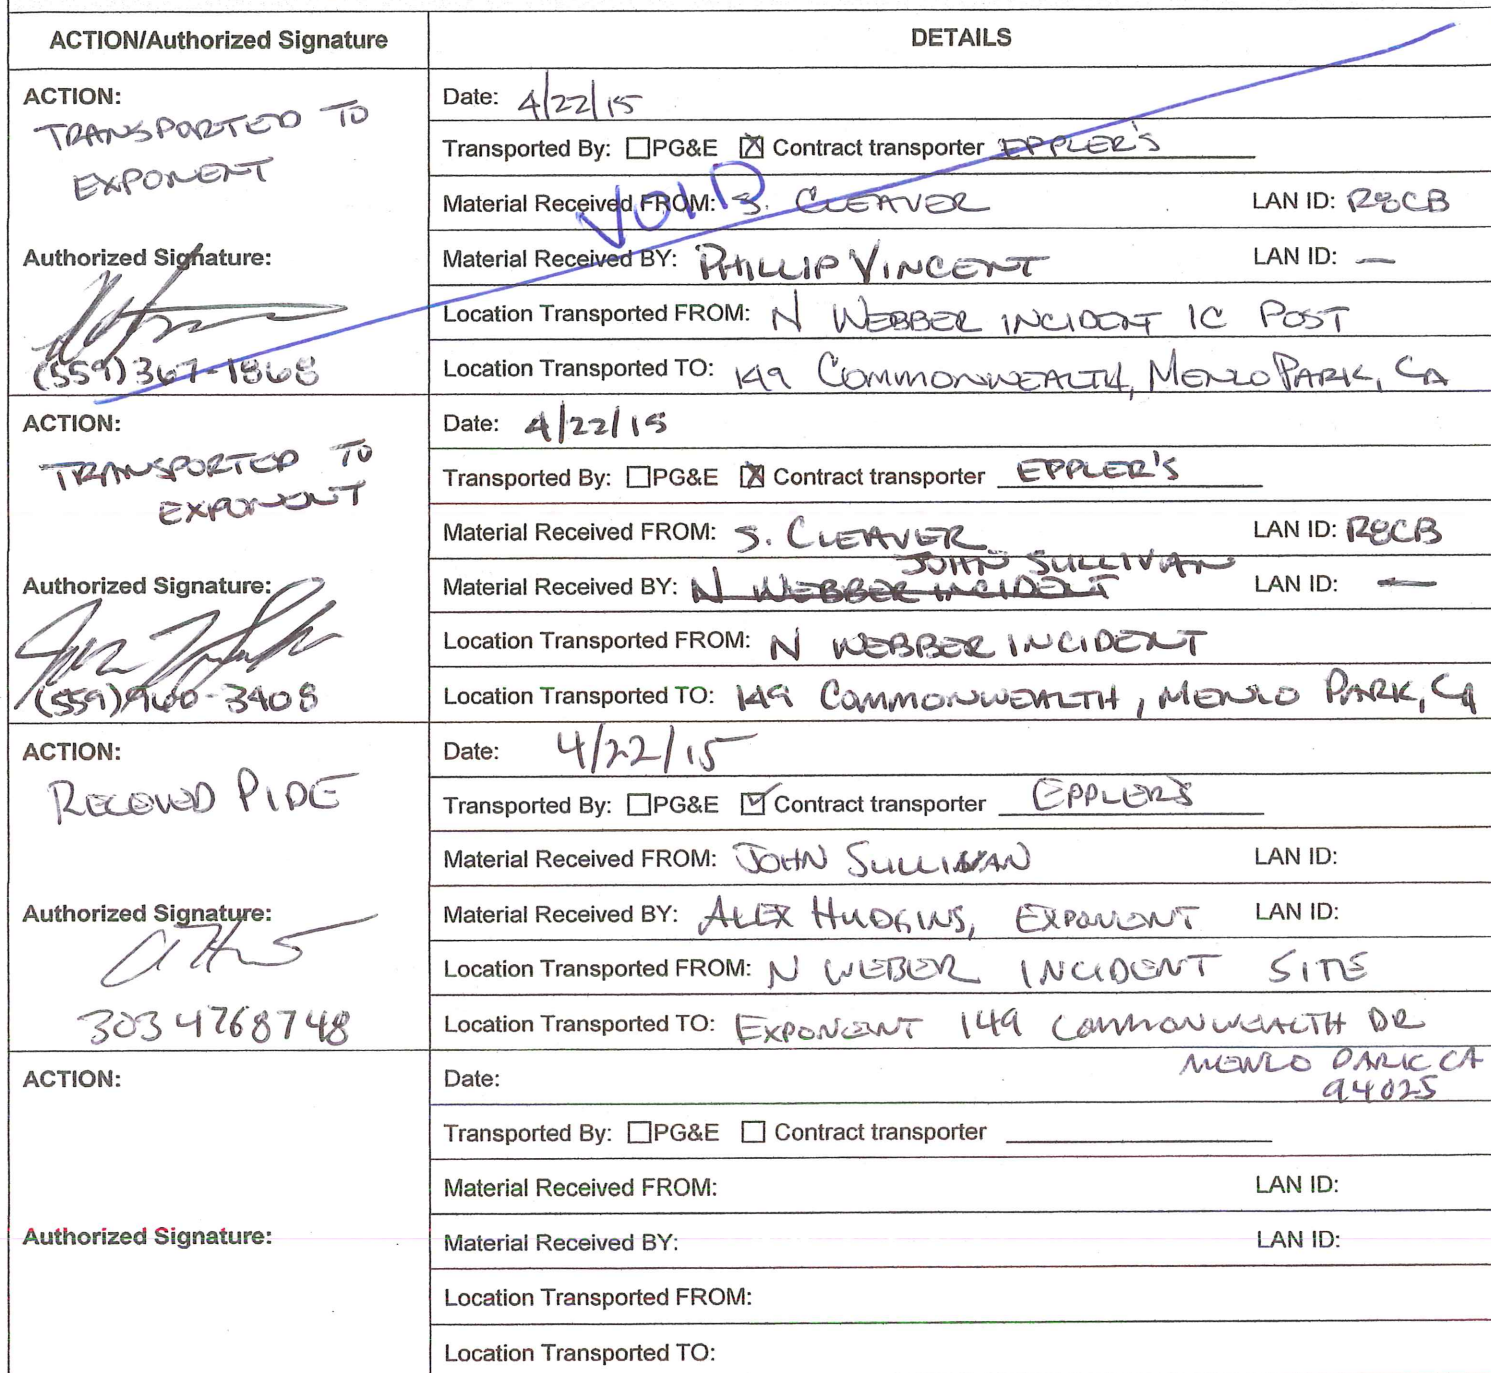 ACTION/Authorized Signature DETAILS
ACTION:
TRANSPORTED TO
EXPONENT
Authorized Signature:
(559) 367-1868
Date: 4/22/15
Transported By: ☐PG&E ☒ Contract transporter EPPLER'S
Material Received FROM: S. CLEAVER LAN ID: R8CB
VOID
Material Received BY: PHILLIP VINCENT LAN ID: —
Location Transported FROM: N WEBBER INCIDENT IC POST
Location Transported TO: 149 COMMONWEALTH, MENLO PARK, CA
ACTION:
TRANSPORTED TO
EXPONENT
Authorized Signature:
(559) 960-3408
Date: 4/22/15
Transported By: ☐PG&E ☒ Contract transporter EPPLER'S
Material Received FROM: S. CLEAVER LAN ID: R8CB
JOHN SULLIVAN
Material Received BY: N WEBBER INCIDENT LAN ID: —
Location Transported FROM: N WEBBER INCIDENT
Location Transported TO: 149 COMMONWEALTH, MENLO PARK, CA
ACTION:
RECEIVED PIPE
Authorized Signature:
303 4768748
Date: 4/22/15
Transported By: ☐PG&E ☑ Contract transporter EPPLERS
Material Received FROM: JOHN SULLIVAN LAN ID:
Material Received BY: ALEX HUDGINS, EXPONENT LAN ID:
Location Transported FROM: N WEBER INCIDENT SITE
Location Transported TO: EXPONENT 149 COMMONWEALTH DR
MENLO PARK CA
94025
ACTION:
Authorized Signature:
Date:
Transported By: ☐PG&E ☐ Contract transporter
Material Received FROM: LAN ID:
Material Received BY: LAN ID:
Location Transported FROM:
Location Transported TO: